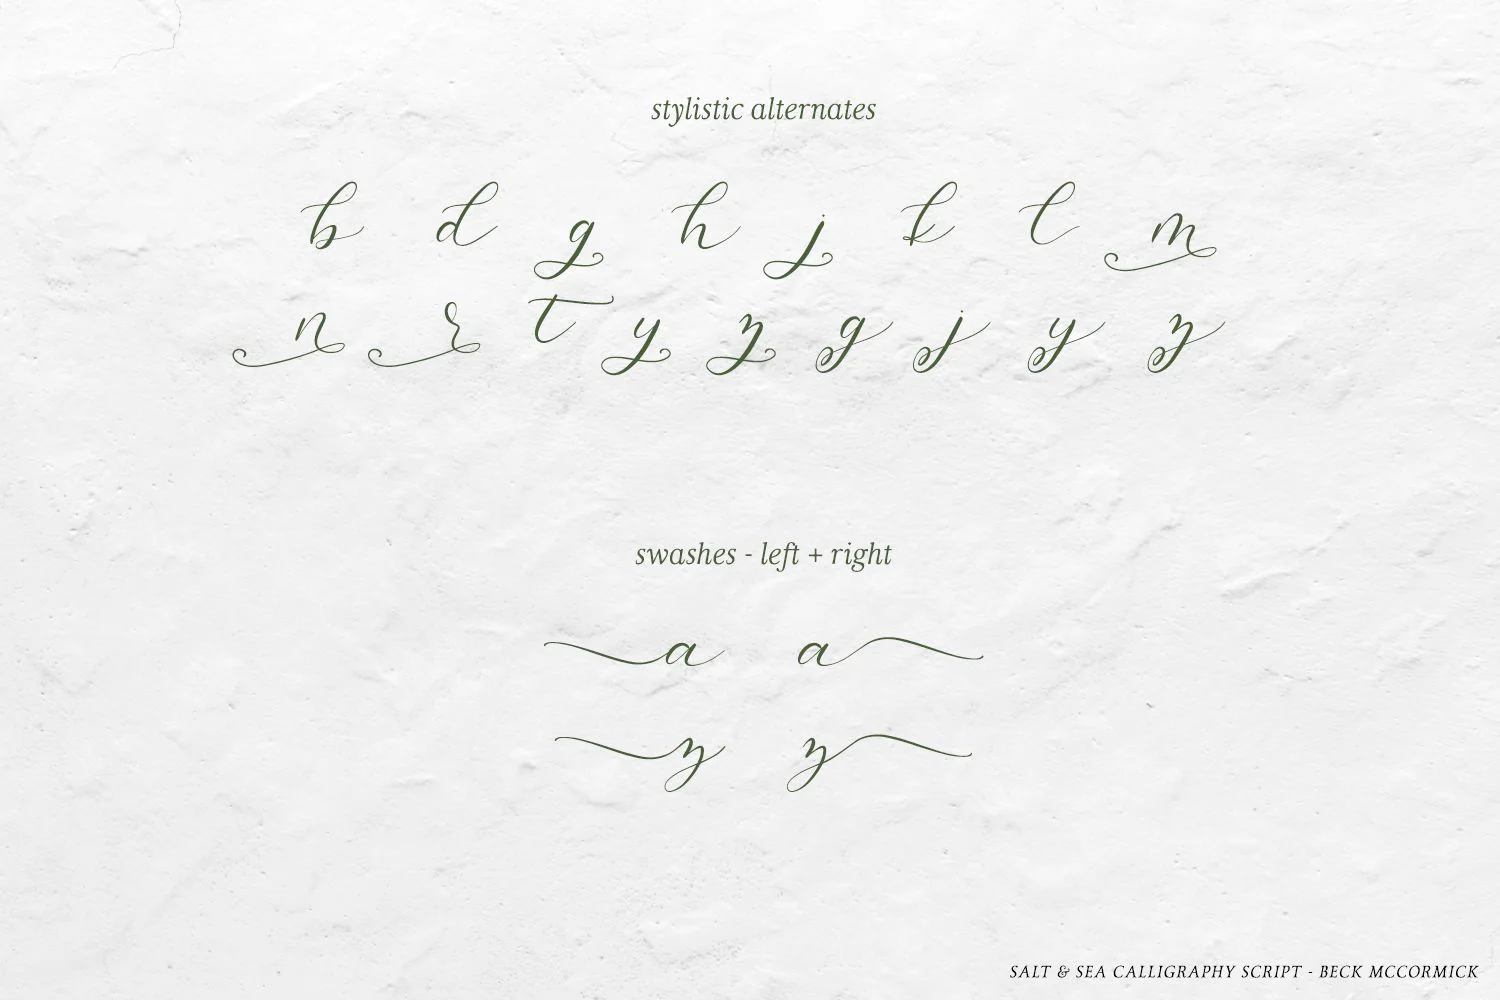 stylistic alternates
b d g h j k l m
n r t y z g j y z
swashes - left + right
a a
z z
SALT & SEA CALLIGRAPHY SCRIPT - BECK MCCORMICK